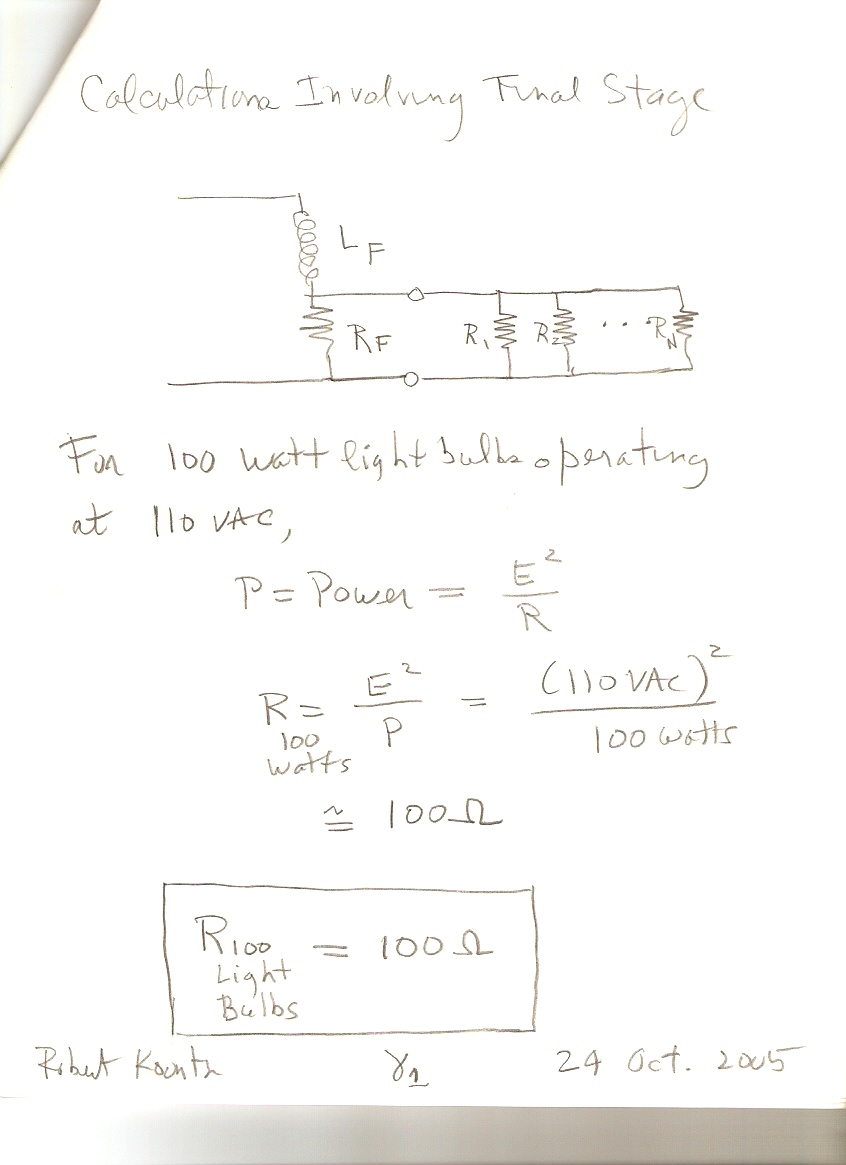 Calculations Involving Final Stage
L F
R F R1 R2 ... RN
For 100 watt light bulbs operating
at 110 VAC,
P = Power = E² / R
R 100 watts = E² / P = (110 VAC)² / 100 watts
≅ 100 Ω
R100 Light Bulbs = 100 Ω
Robert Koontz γ1 24 Oct. 2005